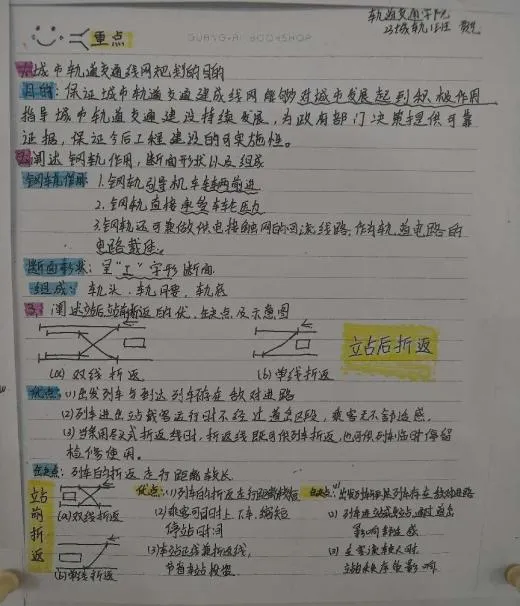 轨道交通学院
重点
GUANG-AI BOOKSHOP
1.城市轨道交通线网规划的目的
目的：保证城市轨道交通建成线网能够对城市发展起到积极作用
指导城市轨道交通建设持续发展，为政府部门决策提供可靠
证据，保证今后工程建设的可实施性。
2.阐述钢轨作用，断面形状以及组成
钢轨作用：1.钢轨引导机车车辆前进
2.钢轨直接承受车轮压力
3.钢轨还可兼做供电接触网的回流线路，作为轨道电路的
电路载体。
断面形状：呈"工"字形断面
组成：轨头、轨腰、轨底
3.阐述站后站前折返的优、缺点及示意图
(a)双线折返
(b)单线折返
立占后折返
优点：(1)出发列车与到达列车存在敌对进路
(2)列车进出站载客运行时不经过道岔区段，乘客无不舒适感
(3)当采用尽头式折返线时，折返线既可供列车折返，也可供列车临时停留
检修使用。
缺点：列车的折返走行距离较长
立占前折返
(a)双线折返
(b)单线折返
优点：(1)列车的折返走行距离较短
(2)乘客可同时上下车，缩短
停站时间
(3)车站正线兼折返线，
节省车站投资
缺点：
(2)列车进站或出站通过道岔
影响舒适感
(3)
站台秩序受影响